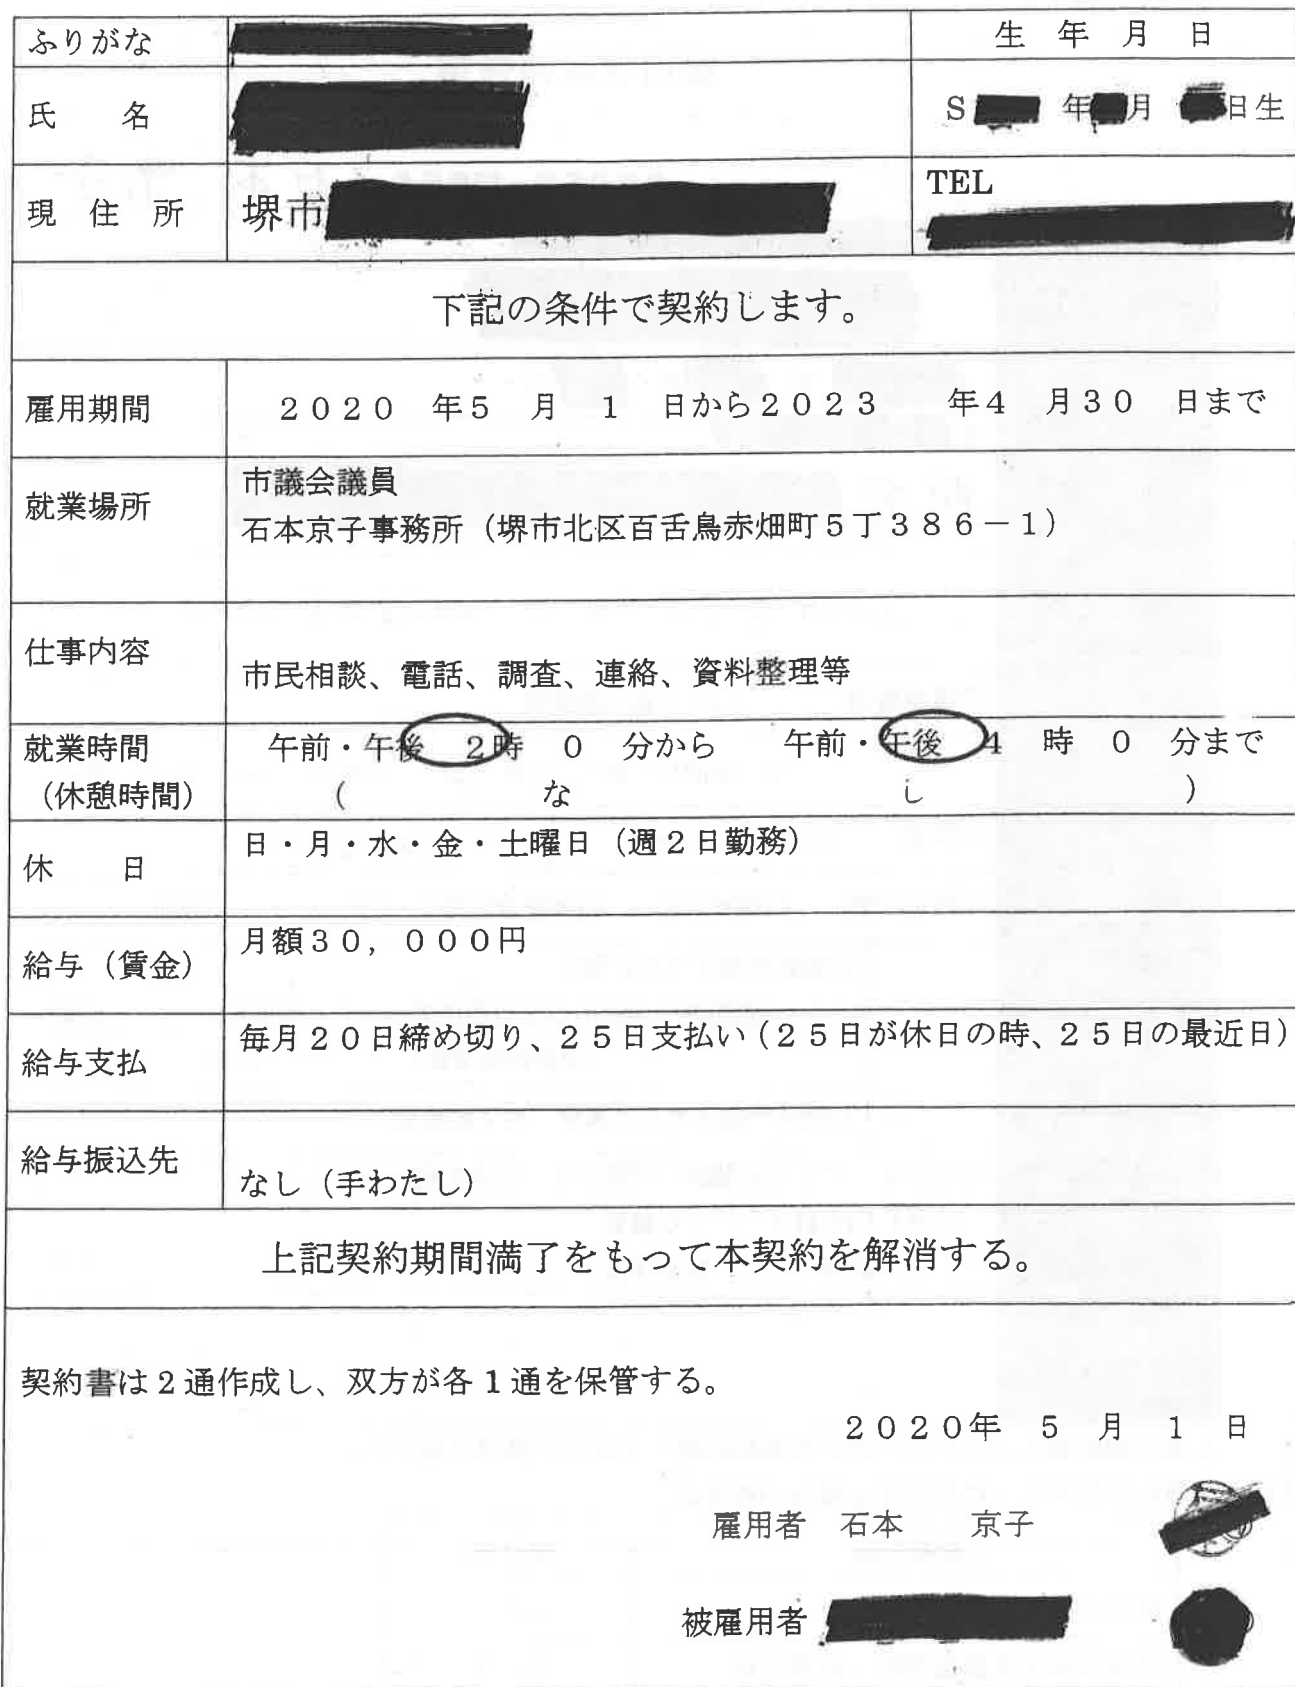 ふりがな
生 年 月 日
氏 名
S 年 月 日生
現 住 所
堺市
TEL
下記の条件で契約します。
雇用期間
2020 年5 月 1 日から2023 年4 月30 日まで
就業場所
市議会議員
石本京子事務所（堺市北区百舌鳥赤畑町5丁386－1）
仕事内容
市民相談、電話、調査、連絡、資料整理等
就業時間
（休憩時間）
午前・午後 2時 0 分から 午前・午後 4 時 0 分まで
（ な し ）
休 日
日・月・水・金・土曜日（週2日勤務）
給与（賃金）
月額30，000円
給与支払
毎月20日締め切り、25日支払い（25日が休日の時、25日の最近日）
給与振込先
なし（手わたし）
上記契約期間満了をもって本契約を解消する。
契約書は2通作成し、双方が各1通を保管する。
2020年 5 月 1 日
雇用者 石本 京子
被雇用者